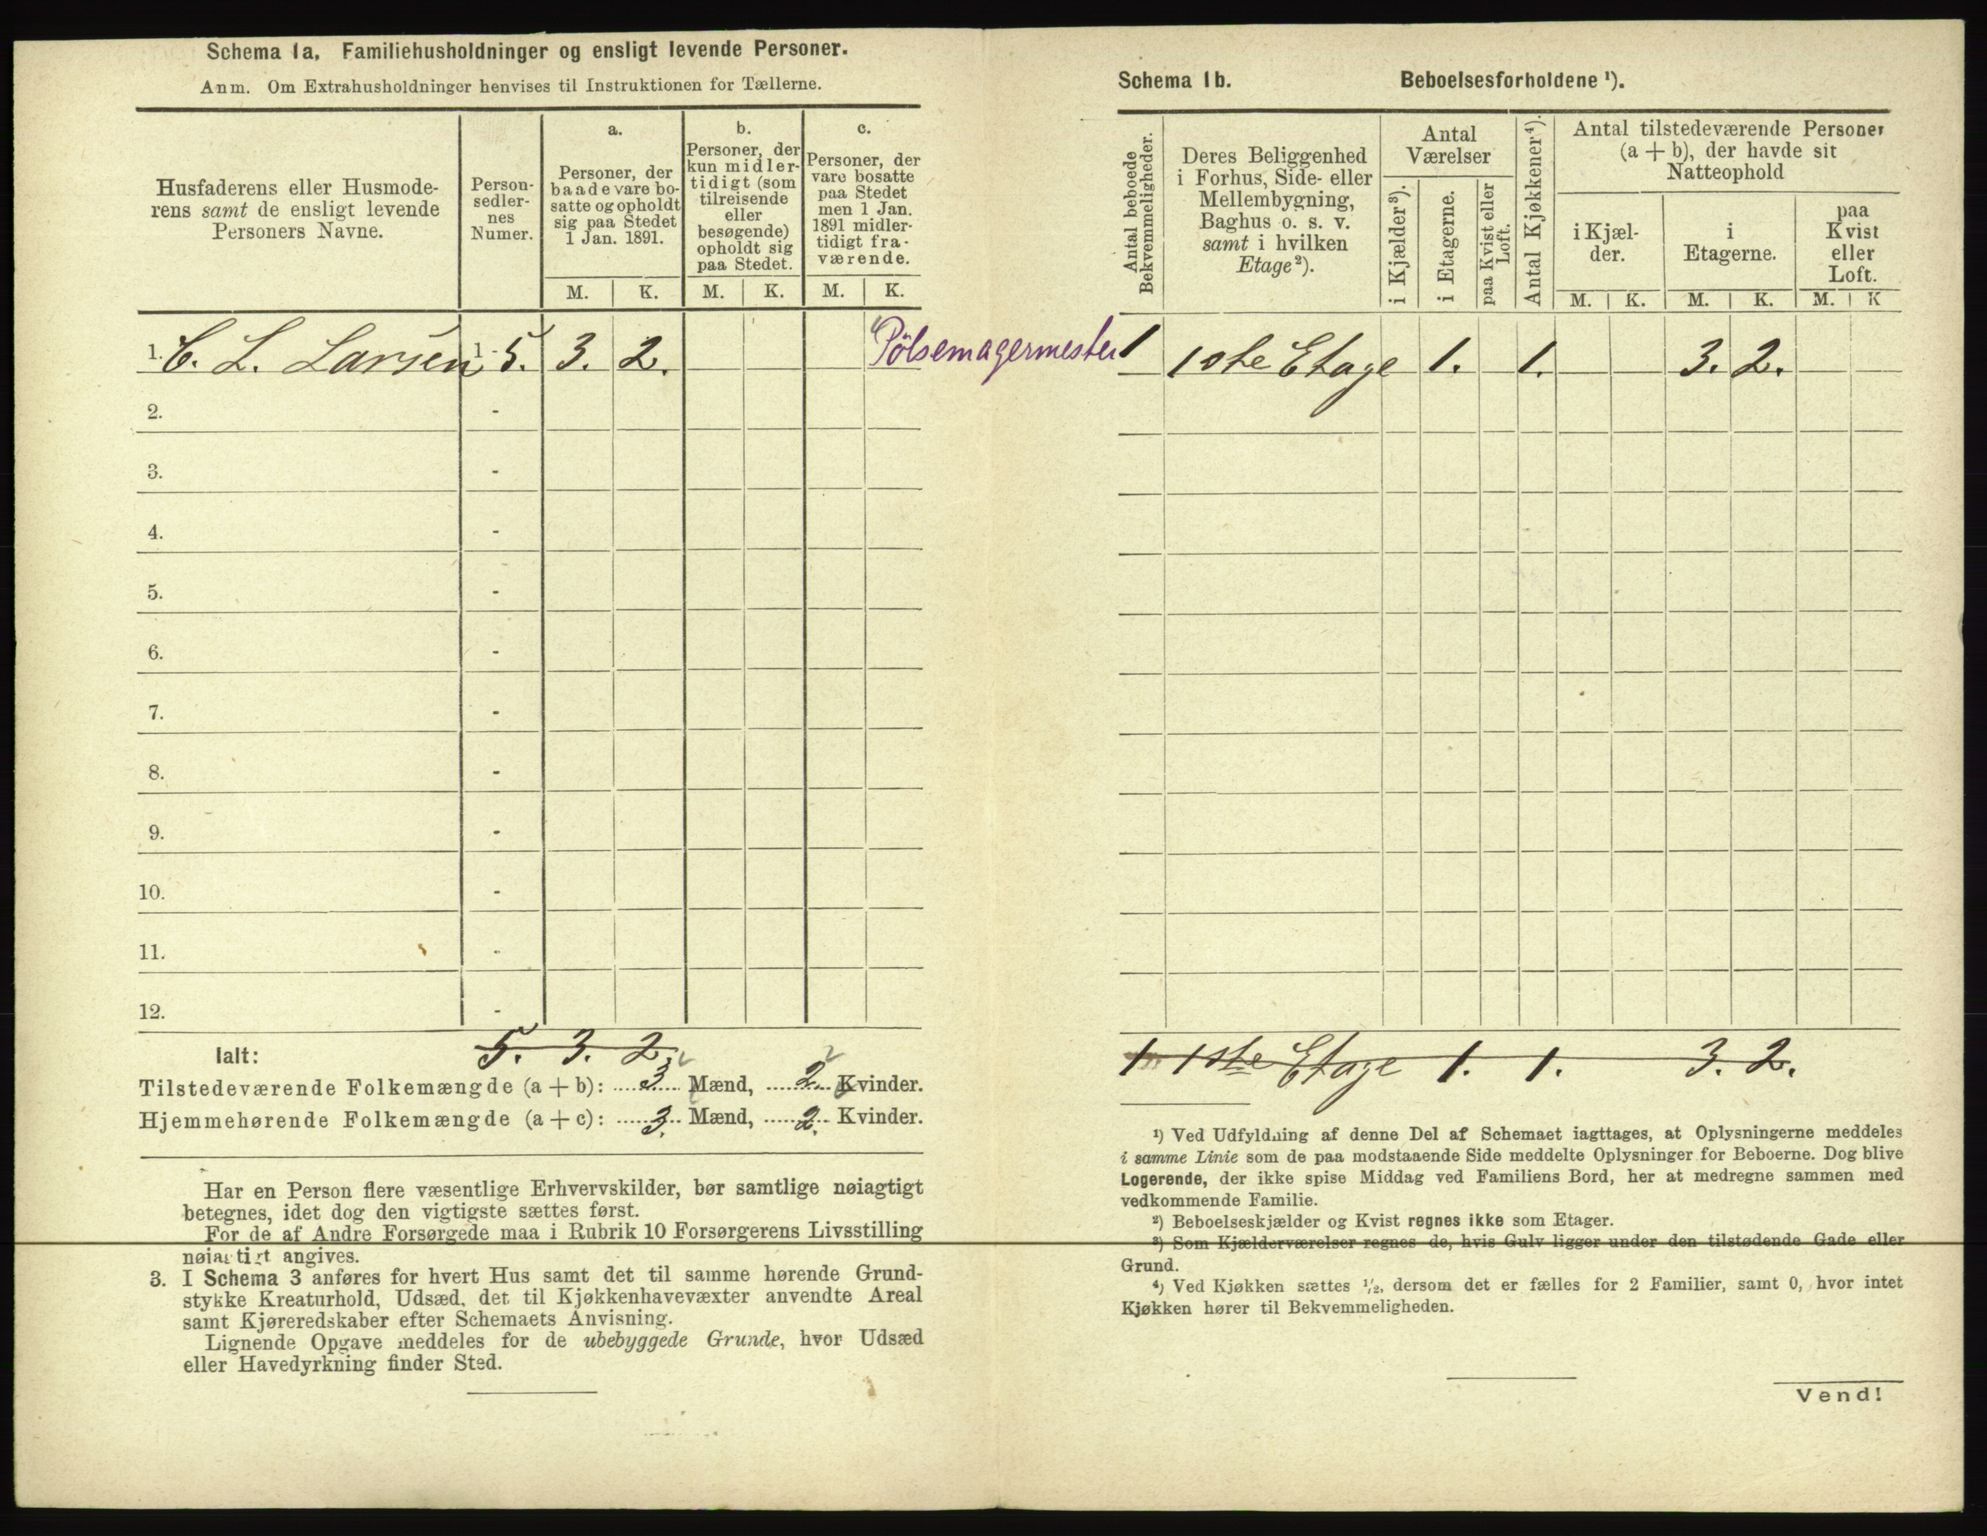 Schema 1a. Familiehusholdninger og ensligt levende Personer.
Anm. Om Extrahusholdninger henvises til Instruktionen for Tællerne.
Husfaderens eller Husmode-
rens samt de ensligt levende
Personers Navne.
Person-
sedler-
nes
Numer.
a.
Personer, der
baade vare bo-
satte og opholdt
sig paa Stedet
1 Jan. 1891.
b.
Personer, der
kun midler-
tidigt (som
tilreisende
eller
besøgende)
opholdt sig
paa Stedet.
c.
Personer, der
vare bosatte
paa Stedet
men 1 Jan.
1891 midler-
tidigt fra-
værende.
M. K. M. K. M. K.
1. C. L. Larsen 1-5. 3. 2. Pölsemagermester
2. -
3. -
4. -
5. -
6. -
7. -
8. -
9. -
10. -
11. -
12. -
Ialt: 5. 3. 2.
Tilstedeværende Folkemængde (a + b): 3 Mænd, 2 Kvinder.
Hjemmehørende Folkemængde (a + c): 3. Mænd, 2. Kvinder.
Har en Person flere væsentlige Erhvervskilder, bør samtlige nøiagtigt
betegnes, idet dog den vigtigste sættes først.
For de af Andre Forsørgede maa i Rubrik 10 Forsørgerens Livsstilling
nøiagtigt angives.
3. I Schema 3 anføres for hvert Hus samt det til samme hørende Grund-
stykke Kreaturhold, Udsæd, det til Kjøkkenhavevæxter anvendte Areal
samt Kjøreredskaber efter Schemaets Anvisning.
Lignende Opgave meddeles for de ubebyggede Grunde, hvor Udsæd
eller Havedyrkning finder Sted.
Schema 1b. Beboelsesforholdene ¹).
Antal beboede
Bekvemmeligheder.
Deres Beliggenhed
i Forhus, Side- eller
Mellembygning,
Baghus o. s. v.
samt i hvilken
Etage ²).
Antal
Værelser
i Kjælder ³).
i Etagerne.
paa Kvist eller
Loft.
Antal Kjøkkener ⁴).
Antal tilstedeværende Personer
(a + b), der havde sit
Natteophold
i Kjæl-
der.
i
Etagerne.
paa
Kvist
eller
Loft.
M. K. M. K. M. K
1 1ste Etage 1. 1. 3. 2.
1 1ste Etage 1. 1. 3. 2.
¹) Ved Udfyldning af denne Del af Schemaet iagttages, at Oplysningerne meddeles
i samme Linie som de paa modstaaende Side meddelte Oplysninger for Beboerne. Dog blive
Logerende, der ikke spise Middag ved Familiens Bord, her at medregne sammen med
vedkommende Familie.
²) Beboelseskjælder og Kvist regnes ikke som Etager.
³) Som Kjælderværelser regnes de, hvis Gulv ligger under den tilstødende Gade eller
Grund.
⁴) Ved Kjøkken sættes ¹/₂, dersom det er fælles for 2 Familier, samt 0, hvor intet
Kjøkken hører til Bekvemmeligheden.
Vend!